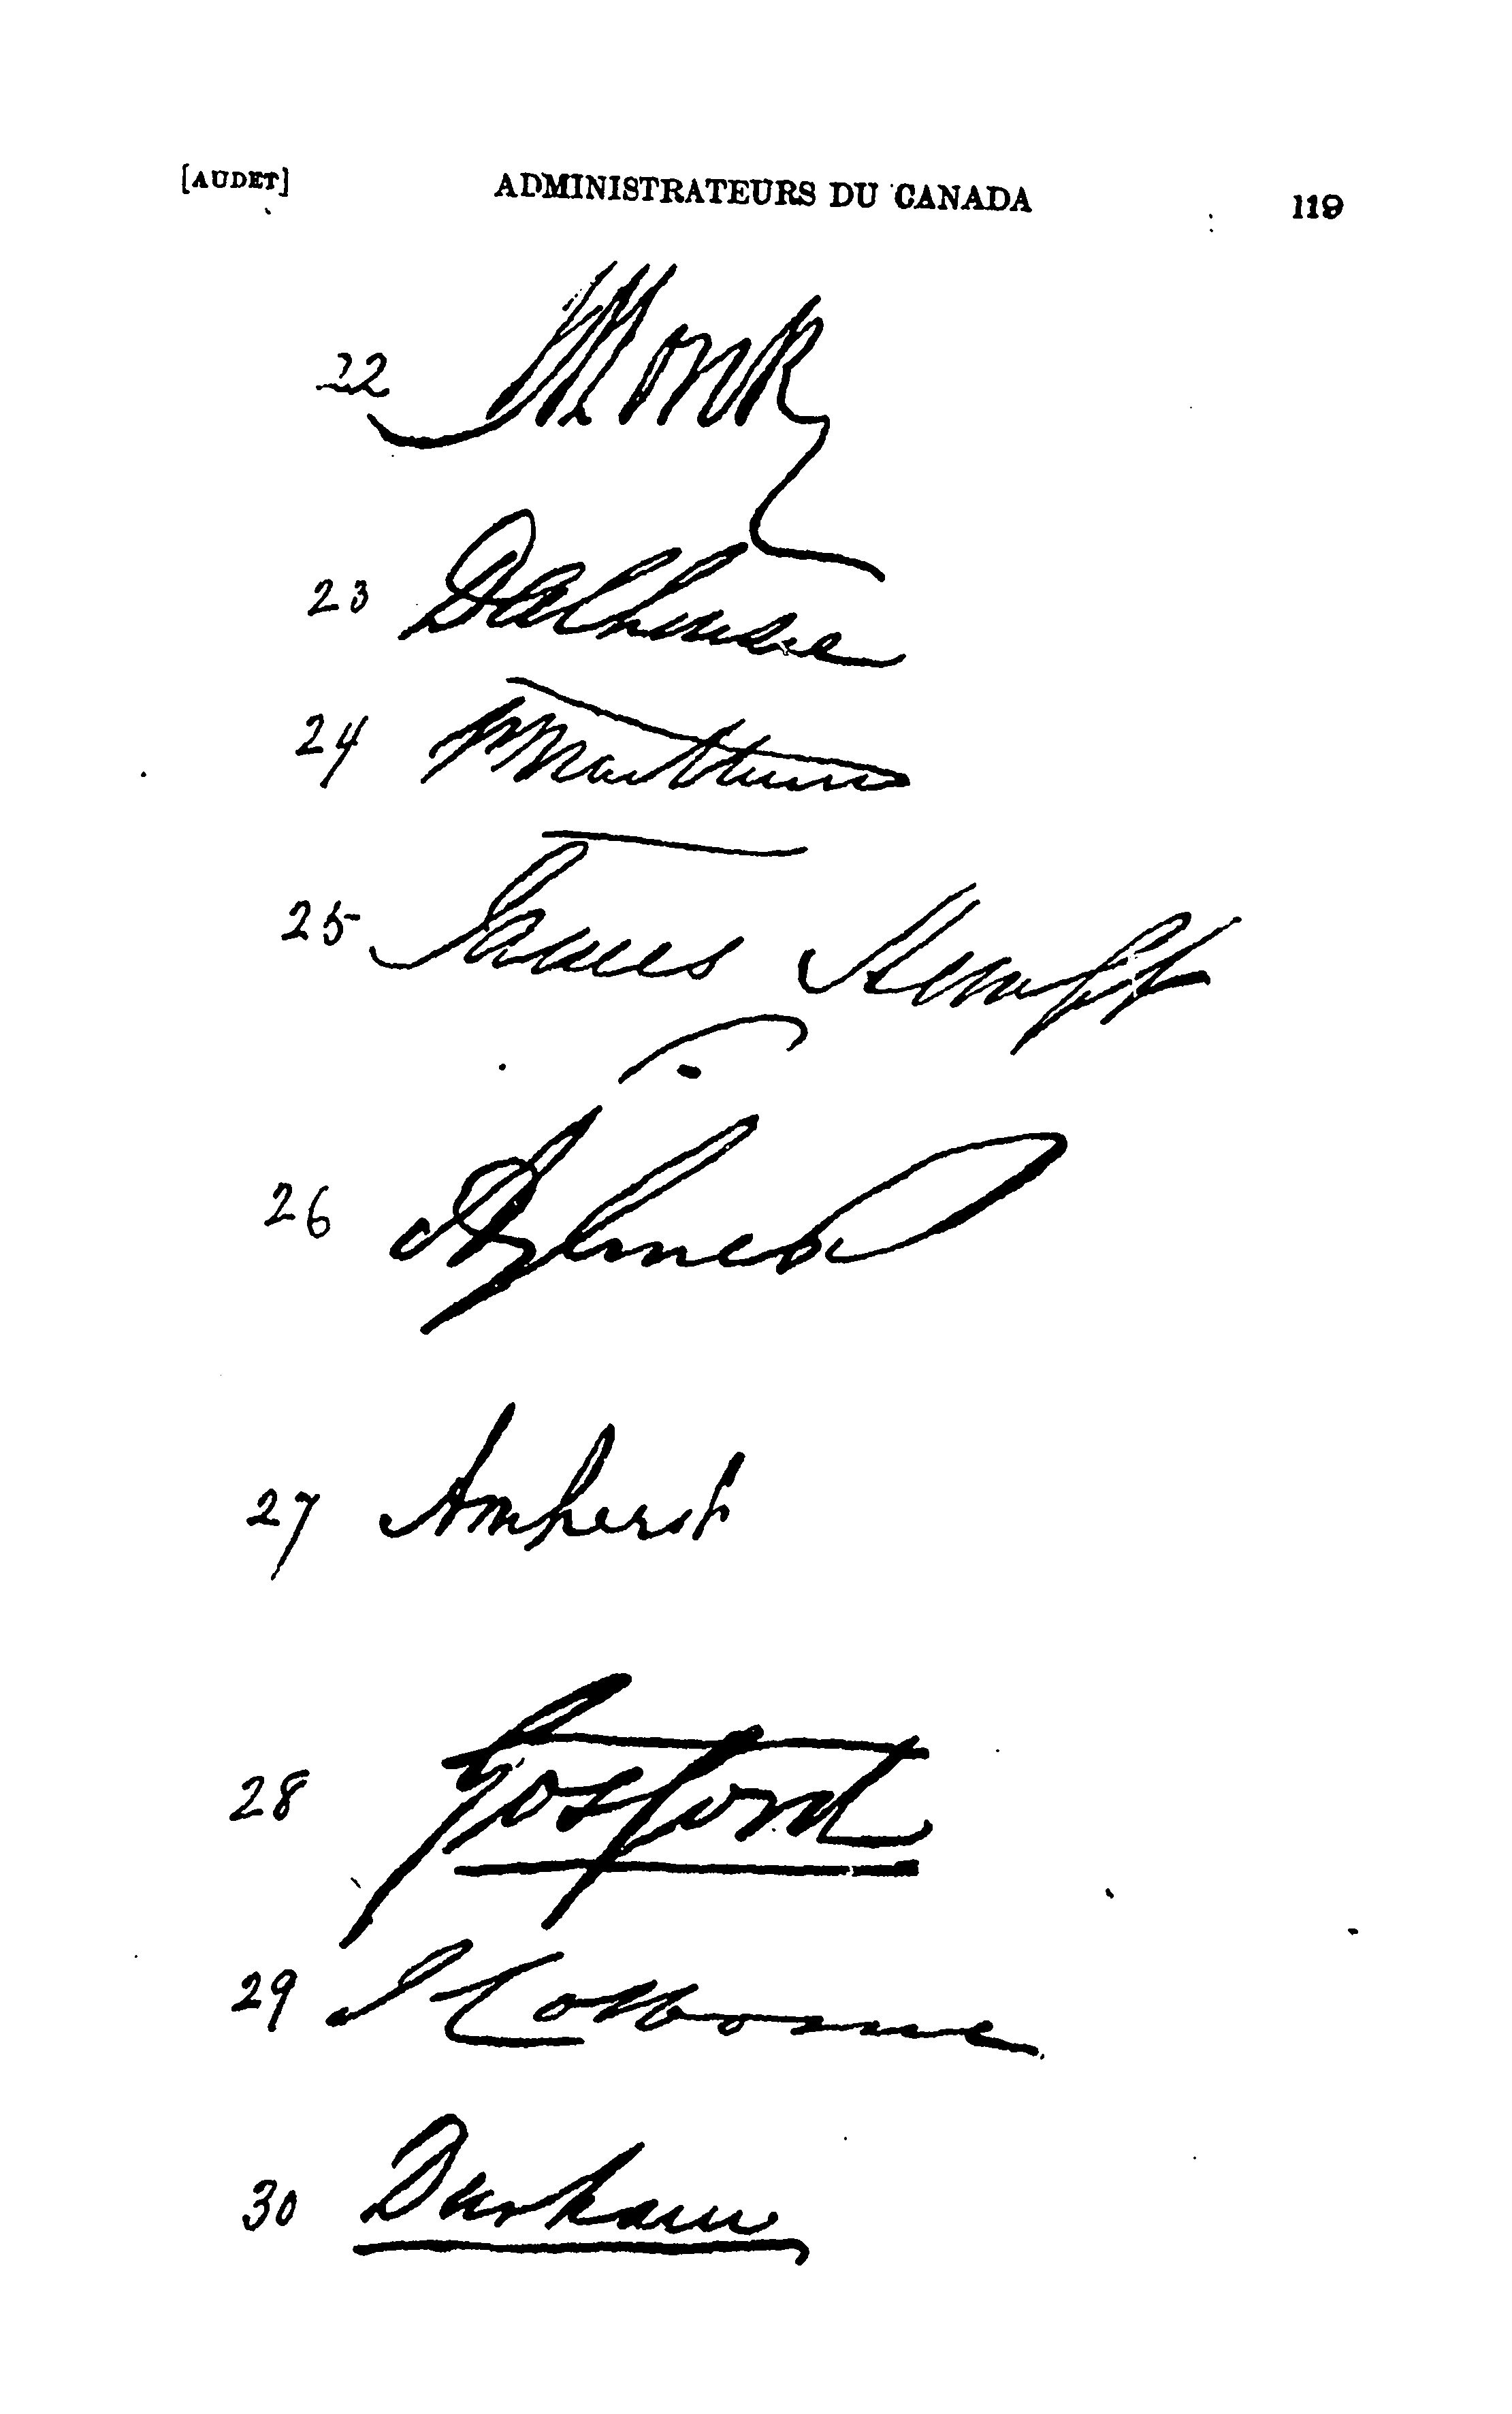 [AUDET] ADMINISTRATEURS DU CANADA 119
22 Monk
23 Dalhousie
24
25 James Kempt
26 Aylmer
27 Amherst
28 Gosford
29 J Colborne
30 Durham